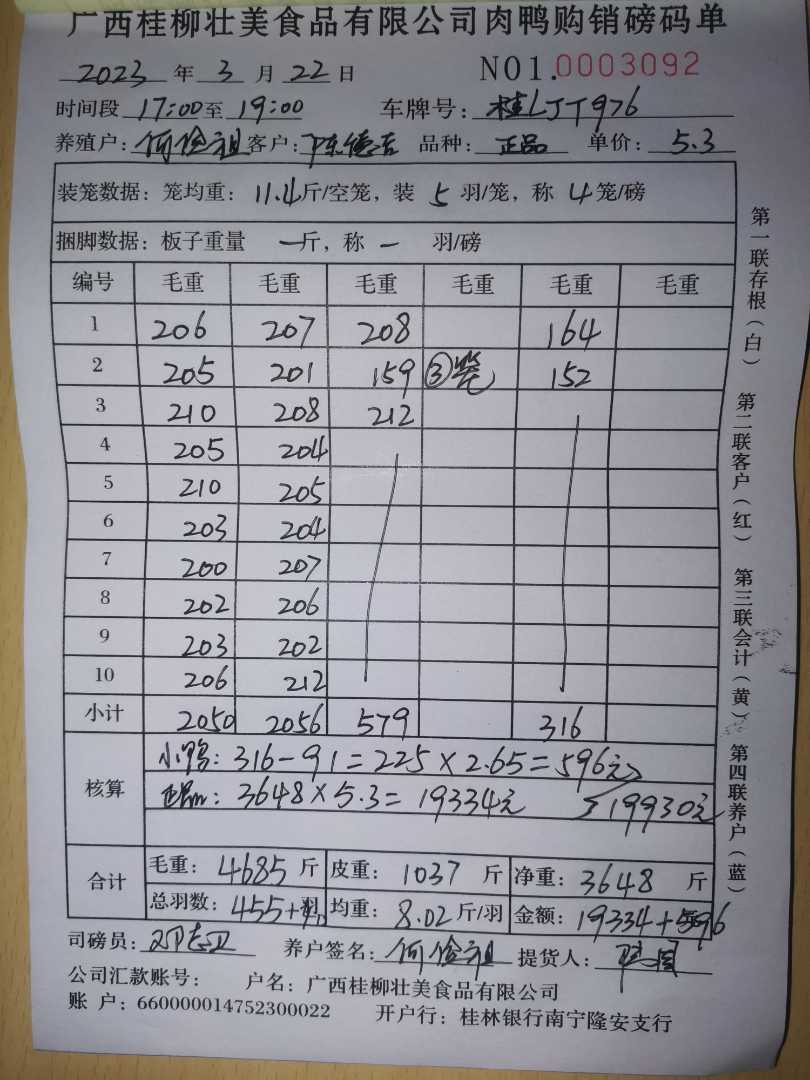 广西桂柳壮美食品有限公司肉鸭购销磅码单
2023 年 3 月 22 日 NO1.0003092
时间段 17:00至 19:00 车牌号: 桂LJT976
养殖户: 何俭祖 客户: 陈德吉 品种: 正品 单价: 5.3
装笼数据: 笼均重: 11.4斤/空笼, 装 5 羽/笼, 称 4 笼/磅
捆脚数据: 板子重量 一斤, 称 一 羽/磅
编号 毛重 毛重 毛重 毛重 毛重 毛重
1 206 207 208 164
2 205 201 159 ③笼 152
3 210 208 212
4 205 204
5 210 205
6 203 204
7 200 207
8 202 206
9 203 202
10 206 212
小计 2050 2056 579 316
核算
小鸭: 316-91=225×2.65=596元
正品: 3648×5.3=19334元 19930元
合计
毛重: 4685 斤 皮重: 1037 斤 净重: 3648 斤
总羽数: 455+ 羽 均重: 8.02斤/羽 金额: 19334+596
司磅员: 养户签名: 何俭祖 提货人:
公司汇款账号: 户名: 广西桂柳壮美食品有限公司
账 户: 660000014752300022 开户行: 桂林银行南宁隆安支行
第一联存根(白)
第二联客户(红)
第三联会计(黄)
第四联养户(蓝)